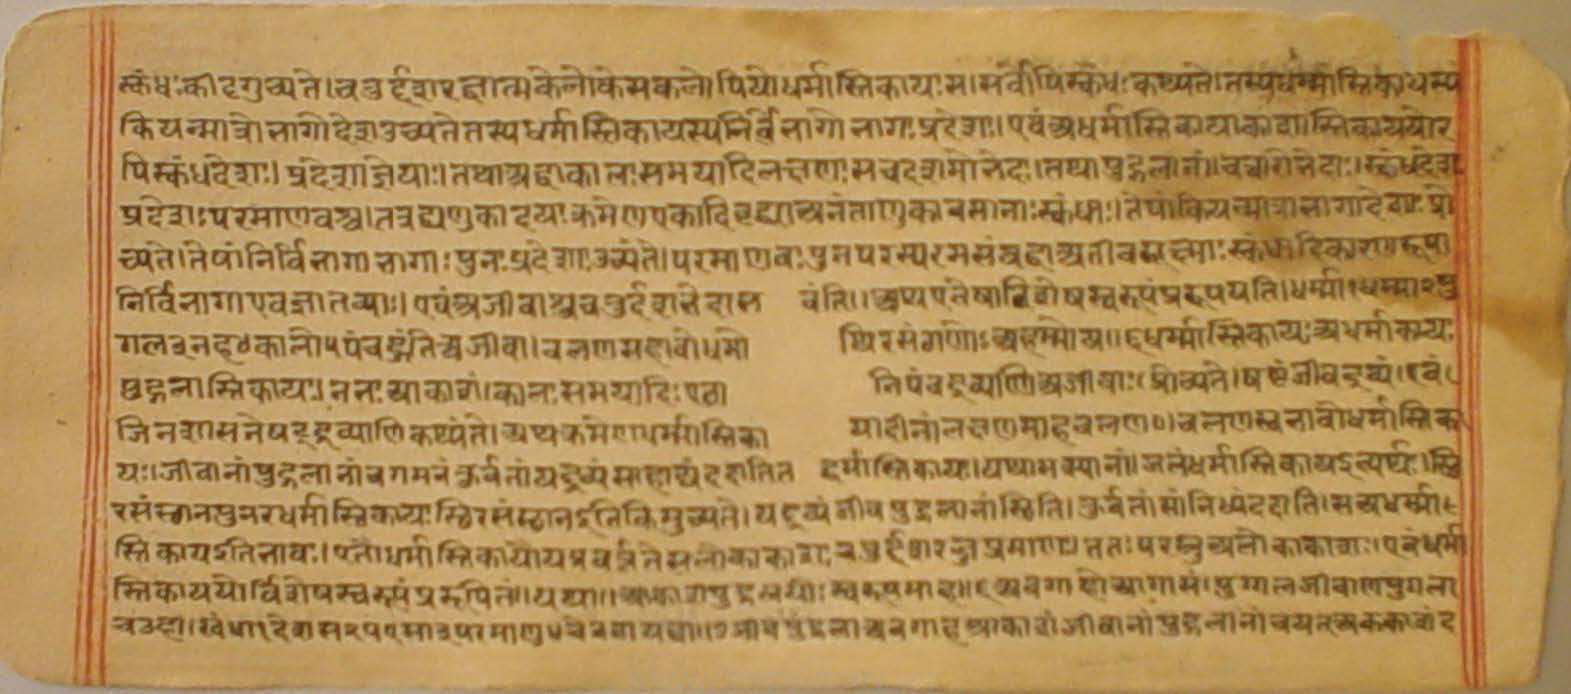 स्कंधः कीदृगुच्यते। चतुर्दशरज्ज्वात्मके लोके सकलोपि यो धर्मास्तिकायः स। सर्वोपि स्कंधः कथ्यते। तस्य धर्मास्तिकायस्य
कियन्मात्रो भागो देश उच्यते तस्य धर्मास्तिकायस्य निर्विभागो भागः प्रदेशः। एवं अधर्मास्तिकायाकाशास्तिकाययोर
पि स्कंधदेशः। प्रदेशा ज्ञेयाः। तथा अद्धाकालः समयादिलक्षणः स च दशमो भेदः। तथा पुद्गलानां। चत्वारो भेदाः। स्कंधदेश
प्रदेशाः परमाणवश्च। तत्र द्व्यणुकादयः क्रमेण एकादिवृद्ध्या अनंताणुकावसानाः स्कंधाः। तेषां कियन्मात्रा भागा देशाः प्रो
च्यंते। तेषां निर्विभागा भागाः पुनः प्रदेशा उच्यंते। परमाणवः पुन परस्परमसंबद्धा अतीवसूक्ष्माः स्कंधादिकारण
निर्विभागा एव ज्ञातव्याः। एवं अजीवाश्च चतुर्दशभेदा भ वंति।। एतेषां विशेषस्वरूपं प्ररूपयति। धर्म्मा १ धम्मा २ पु
गल ३ नह ४ कालो ५ पंच हुंति अजीवा। चलणसहावो धम्मो थिरसंठाणो अहम्मो य।। धर्म्मास्तिकायः अधर्मास्तिकायः
पुद्गलास्तिकायः। नभः आकाशं। कालः समयादिः एता नि पंचद्रव्याणि अजीवाः प्रोच्यंते। षष्टं जीवद्रव्यं। एवं
जिनशासने षट् द्रव्याणि कथ्यंते। अथ क्रमेण धर्मास्तिका यादीनां लक्षणमाह चलण०। चलणस्वभावो धर्मास्तिका
यः। जीवानां पुद्गलानां च गमनं कुर्वतां यद्द्रव्यं साहाय्यं ददाति त द्धर्मास्तिकायः। यथा मत्स्यानां। जलं धर्मास्तिकाय इत्यर्थः। स्थि
रसंस्थान पुनरधर्मास्तिकायः स्थिरसंस्थान इति किमुच्यते। यद्द्रव्यं जीवपुद्गलानां स्थिति। कुर्वतां सांनिध्यं ददाति। स अधर्मा
स्तिकाय इति भावः। एतौ धर्मास्तिकायौ यत्र वर्त्तते स लोकाकाशः चतुर्दशरज्जुप्रमाणः। ततः परस्तु अलोकाकाशः। एवं धर्मा
स्तिकाययोर्विशेषस्वरूपं प्ररूपितं। यथा।। आकाशपुद्गलयोः स्वरूपमाह।। अवगाहो आगासं। पुग्गलजीवाण पुगला
चउहा। खंधा देस पएसा परमाणु चेव नायव्वा।। जीवपुद्गला अवगाह आकाशं जीवानां पुद्गलानां च